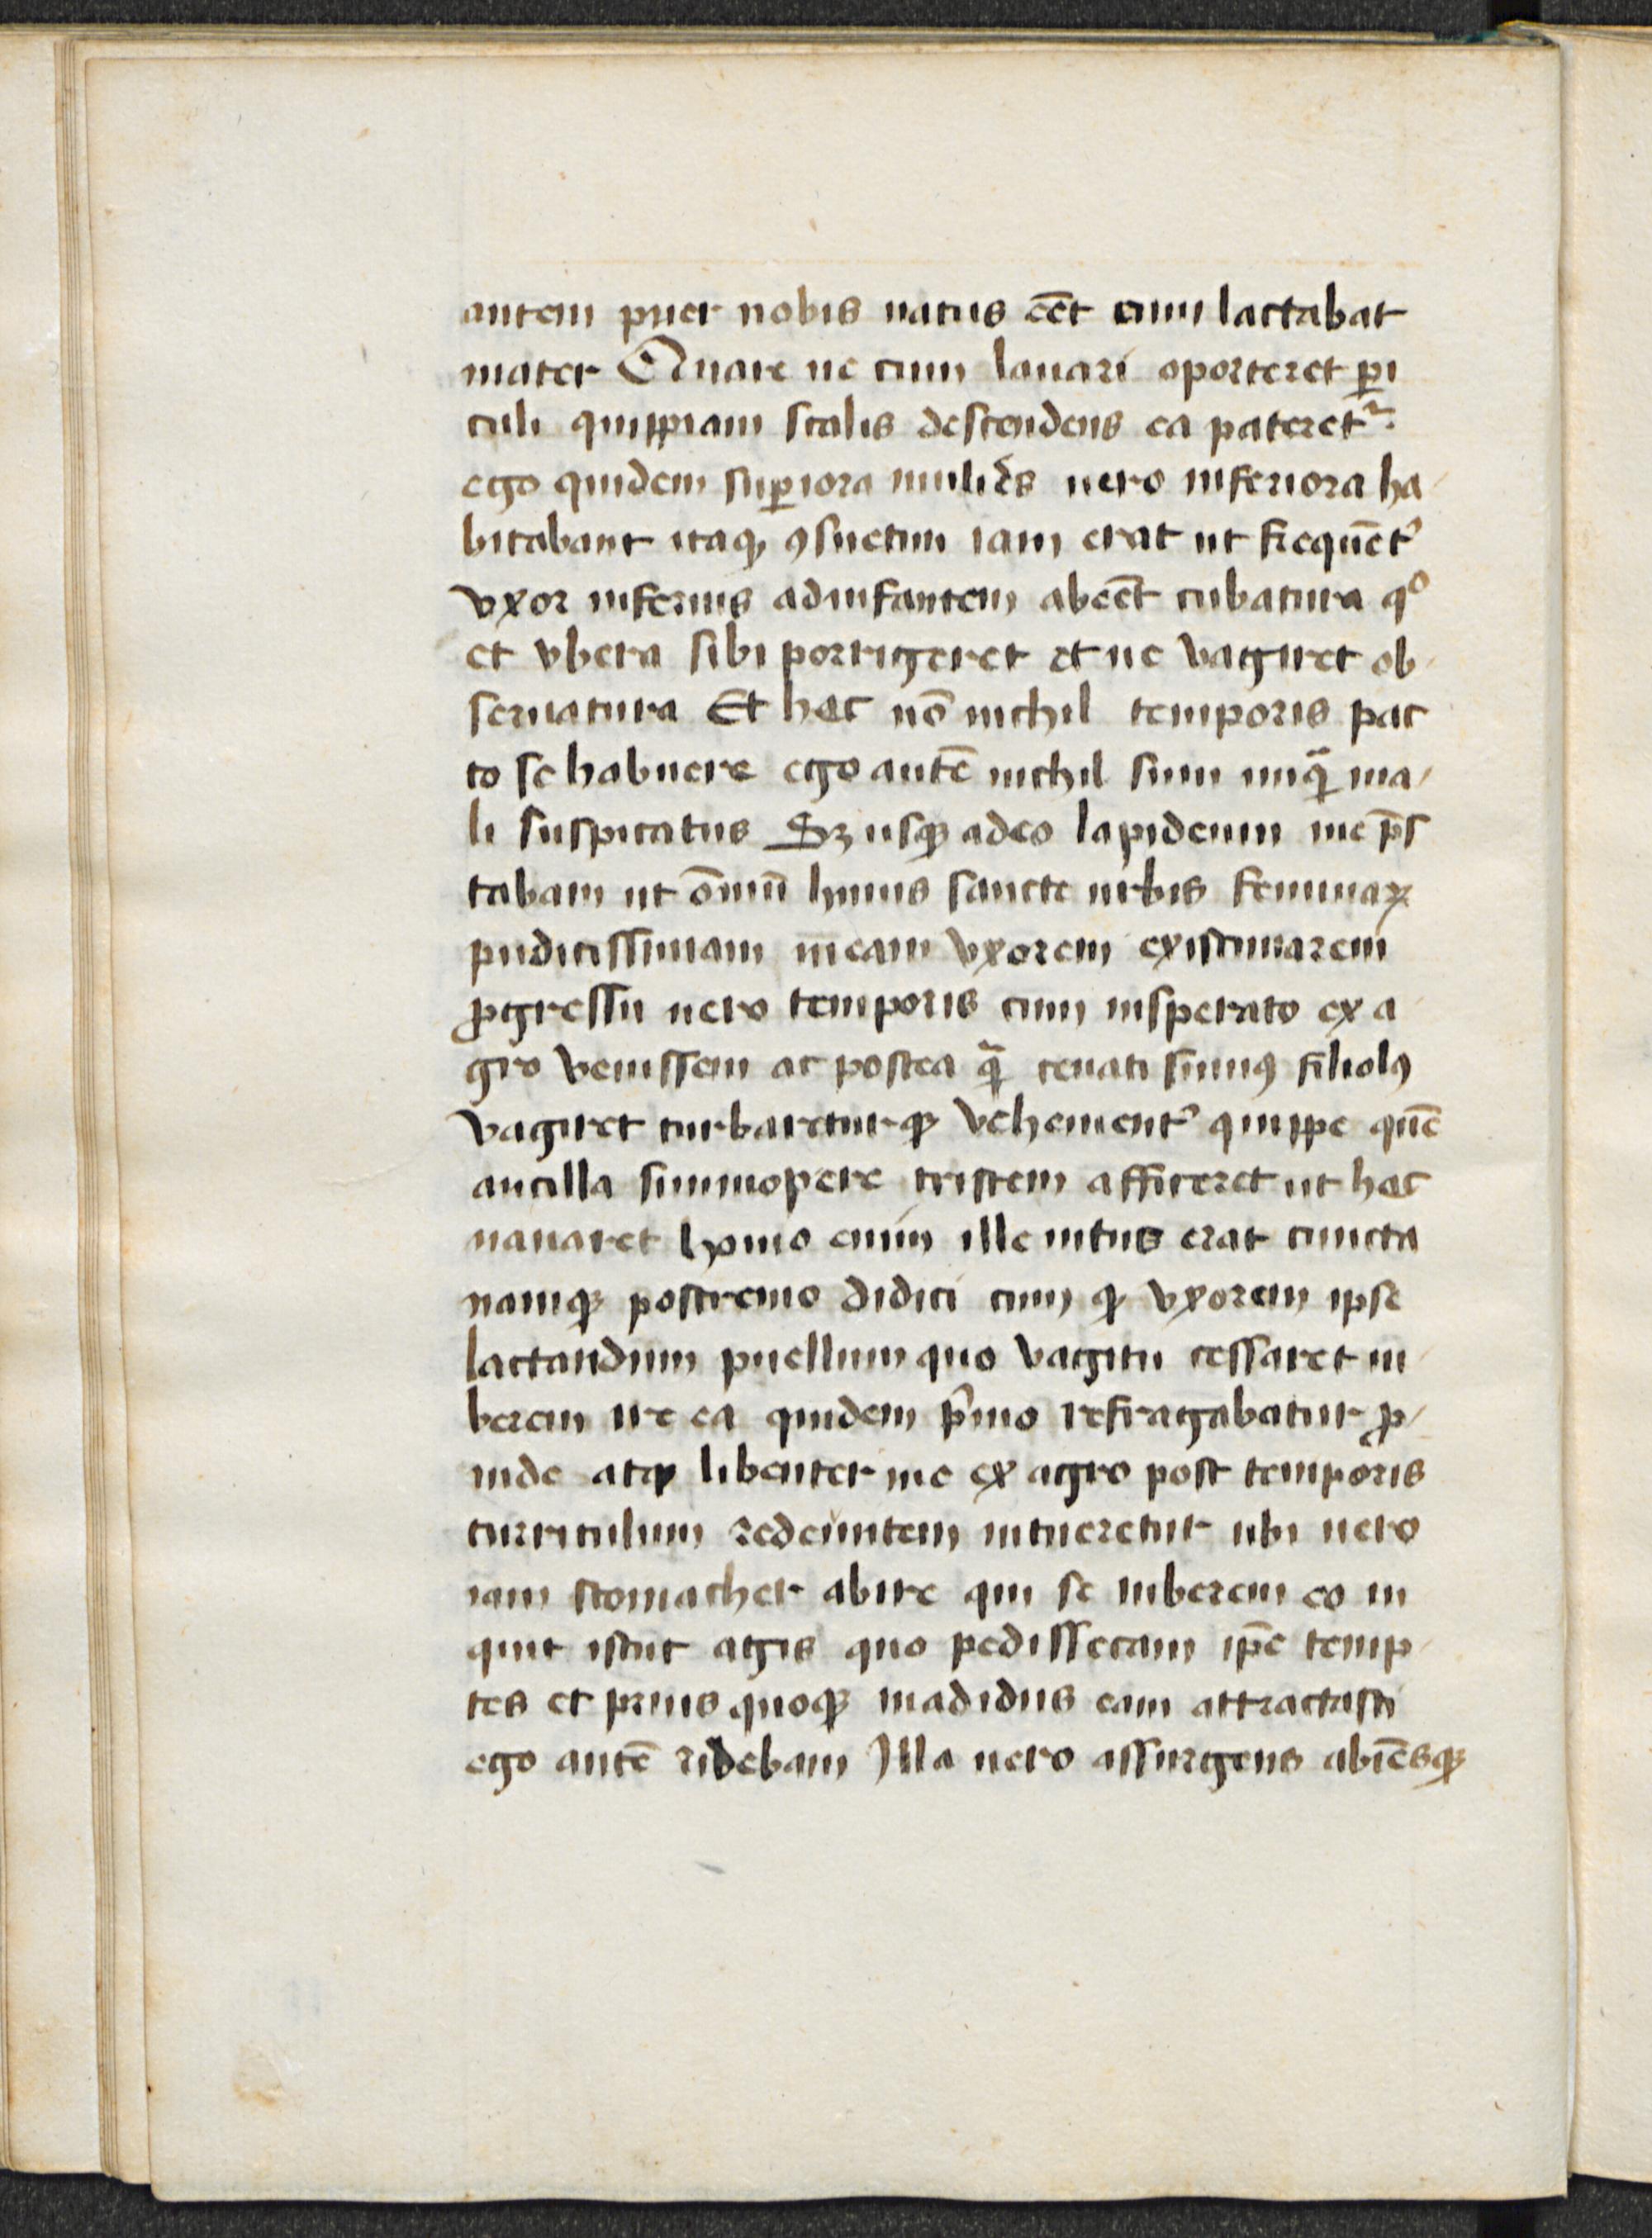 autem puer nobis natus eēt eum lactabat
mater Quare ne cum lauari oporteret ꝑi
culi quippiam scalis descendens ea pateretᷣ.
ego quidem suꝑiora mulieꝛes uero inferiora ha-
bitabant itaqꝫ ꝯsuetum iam erat ut frequēt᾽
vxor inferius ad infantem abeēt cubatura qͦ
et vbera sibi porrigeret et ne vagiret ob-
seruatura Et hac nō nichil temporis pac
to se habuere ego autē nichil sum unqᷓ ma-
li suspicatus Sꝫ usqꝫ adeo lapideum me p̄s
tabam ut omniū huius sancte urbis feminaꝝ
pudicissimam meam vxorem existimarem
ꝓgressu uero temporis cum insperato ex a
gro venissem ac postea qᷓ cenati sumꝰ filiolꝰ
vagiret turbareturqꝫ vehement᾽ quippe quē
ancilla summopere tristem afficeret ut hac
nauaret homo enim ille intus erat cuncta
namqꝫ postremo didici cum qꝫ vxorem ipse
lactandum puellum quo vagitu cessaret iu
berem ire ea quidem p̄mo refragabatur ꝓ-
inde atqꝫ libenter me ex agro post temporis
curriculum redeuntem intueretur ubi uero
iam stomacher abire qui se iuberem eo in
quit istut agis quo pedissecam ip̄e temp-
tes et prius quoqꝫ madidus eam attractasti
ego autē ridebam Illa uero assurgens abiēsqꝫ